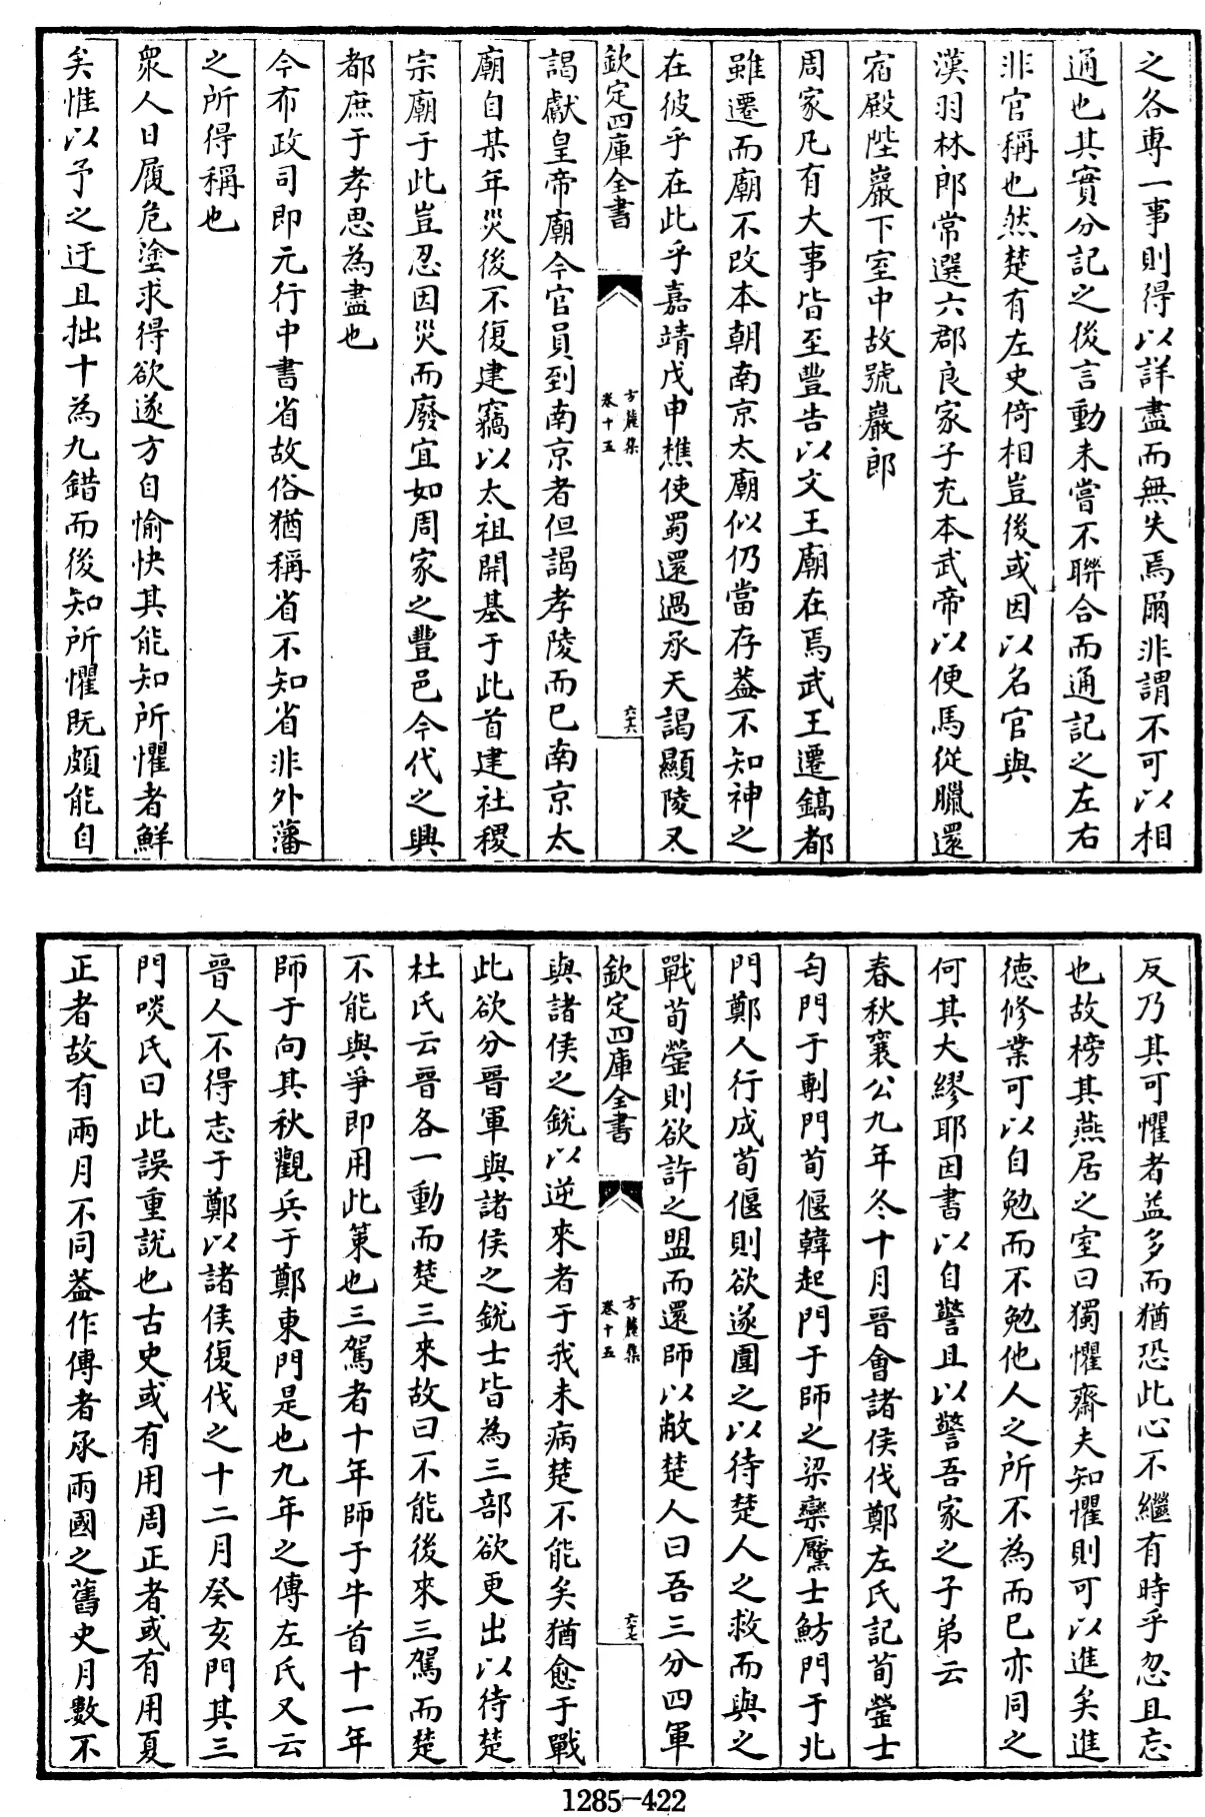 之各專一事則得以詳盡而無失焉爾非謂不可以相
通也其實分記之後言動未嘗不聨合而通記之左右
非官稱也然楚有左史倚相豈後或因以名官與
漢羽林郎常選六郡良家子充本武帝以便馬從臘還
宿殿陛巖下室中故號巖郎
周家凡有大事皆至豐告以文王廟在焉武王遷鎬都
雖遷而廟不改本朝南京太廟似仍當存葢不知神之
在彼乎在此乎嘉靖戊申樵使蜀還過承天謁顯陵又
欽定四庫全書
方麓集
卷十五
六六
謁獻皇帝廟今官員到南京者但謁孝陵而已南京太
廟自某年災後不復建竊以太祖開基于此首建社稷
宗廟于此豈忍因災而廢宜如周家之豐邑今代之興
都庶于孝思為盡也
今布政司即元行中書省故俗猶稱省不知省非外藩
之所得稱也
衆人日履危塗求得欲遂方自愉快其能知所懼者鮮
矣惟以予之迂且拙十為九錯而後知所懼既頗能自
反乃其可懼者益多而猶恐此心不繼有時乎忽且忘
也故榜其燕居之室曰獨懼齋夫知懼則可以進矣進
德修業可以自勉而不勉他人之所不為而已亦同之
何其大繆耶因書以自警且以警吾家之子弟云
春秋襄公九年冬十月晉會諸侯伐鄭左氏記荀罃士
匄門于鄟門荀偃韓起門于師之梁欒黶士魴門于北
門鄭人行成荀偃則欲遂圍之以待楚人之救而與之
戰荀罃則欲許之盟而還師以敝楚人曰吾三分四軍
欽定四庫全書
方麓集
卷十五
六七
與諸侯之銳以逆來者于我未病楚不能矣猶愈于戰
此欲分晉軍與諸侯之銳士皆為三部欲更出以待楚
杜氏云晉各一動而楚三來故曰不能後來三駕而楚
不能與爭即用此策也三駕者十年師于牛首十一年
師于向其秋觀兵于鄭東門是也九年之傳左氏又云
晉人不得志于鄭以諸侯復伐之十二月癸亥門其三
門啖氏曰此誤重說也古史或有用周正者或有用夏
正者故有兩月不同葢作傳者承兩國之舊史月數不
1285-422